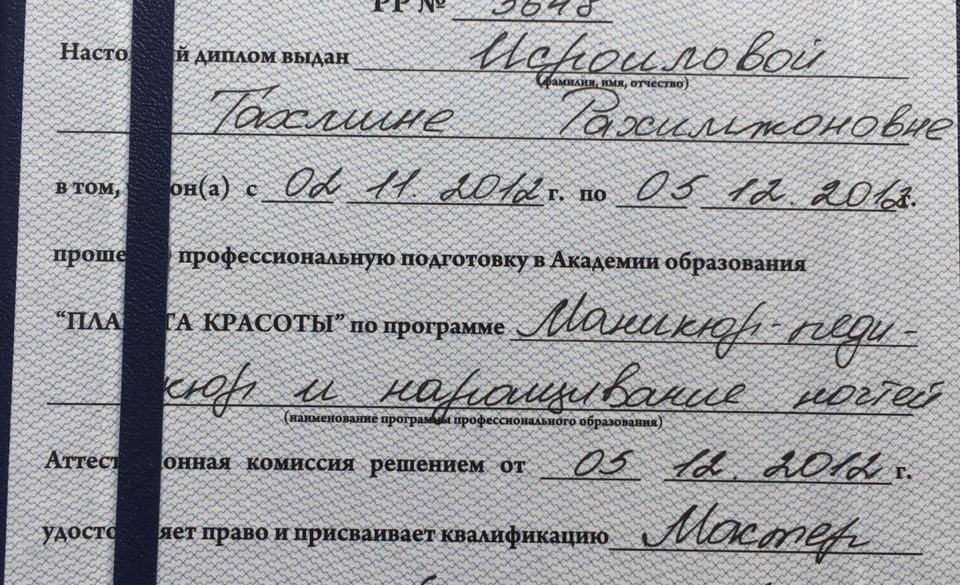 РР № 3648
Настой диплом выдан Исроиловой
(фамилия, имя, отчество)
Тахмине Рахимжоновне
в том, он(а) с 02 11. 2012 г. по 05 12. 2012 г.
проше профессиональную подготовку в Академии образования
“ПЛА ТА КРАСОТЫ” по программе Маникюр-педи-
кюр и наращивание ногтей
(наименование программы профессионального образования)
Аттест онная комиссия решением от 05 12. 2012 г.
удосто яет право и присваивает квалификацию Мастер